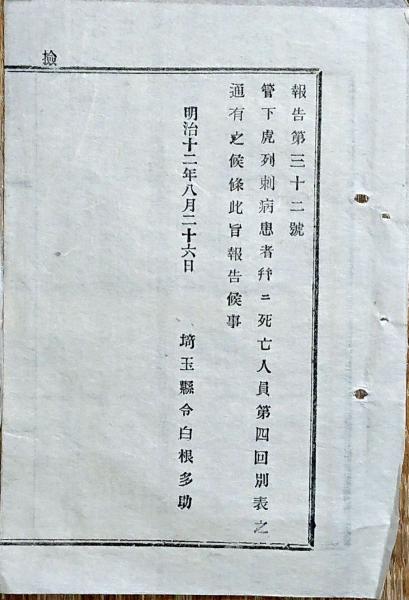 報告第三十二號
管下虎列刺病患者幷ニ死亡人員第四回別表之
通有之候條此旨報告候事
明治十二年八月二十六日
埼玉縣令白根多助
撿